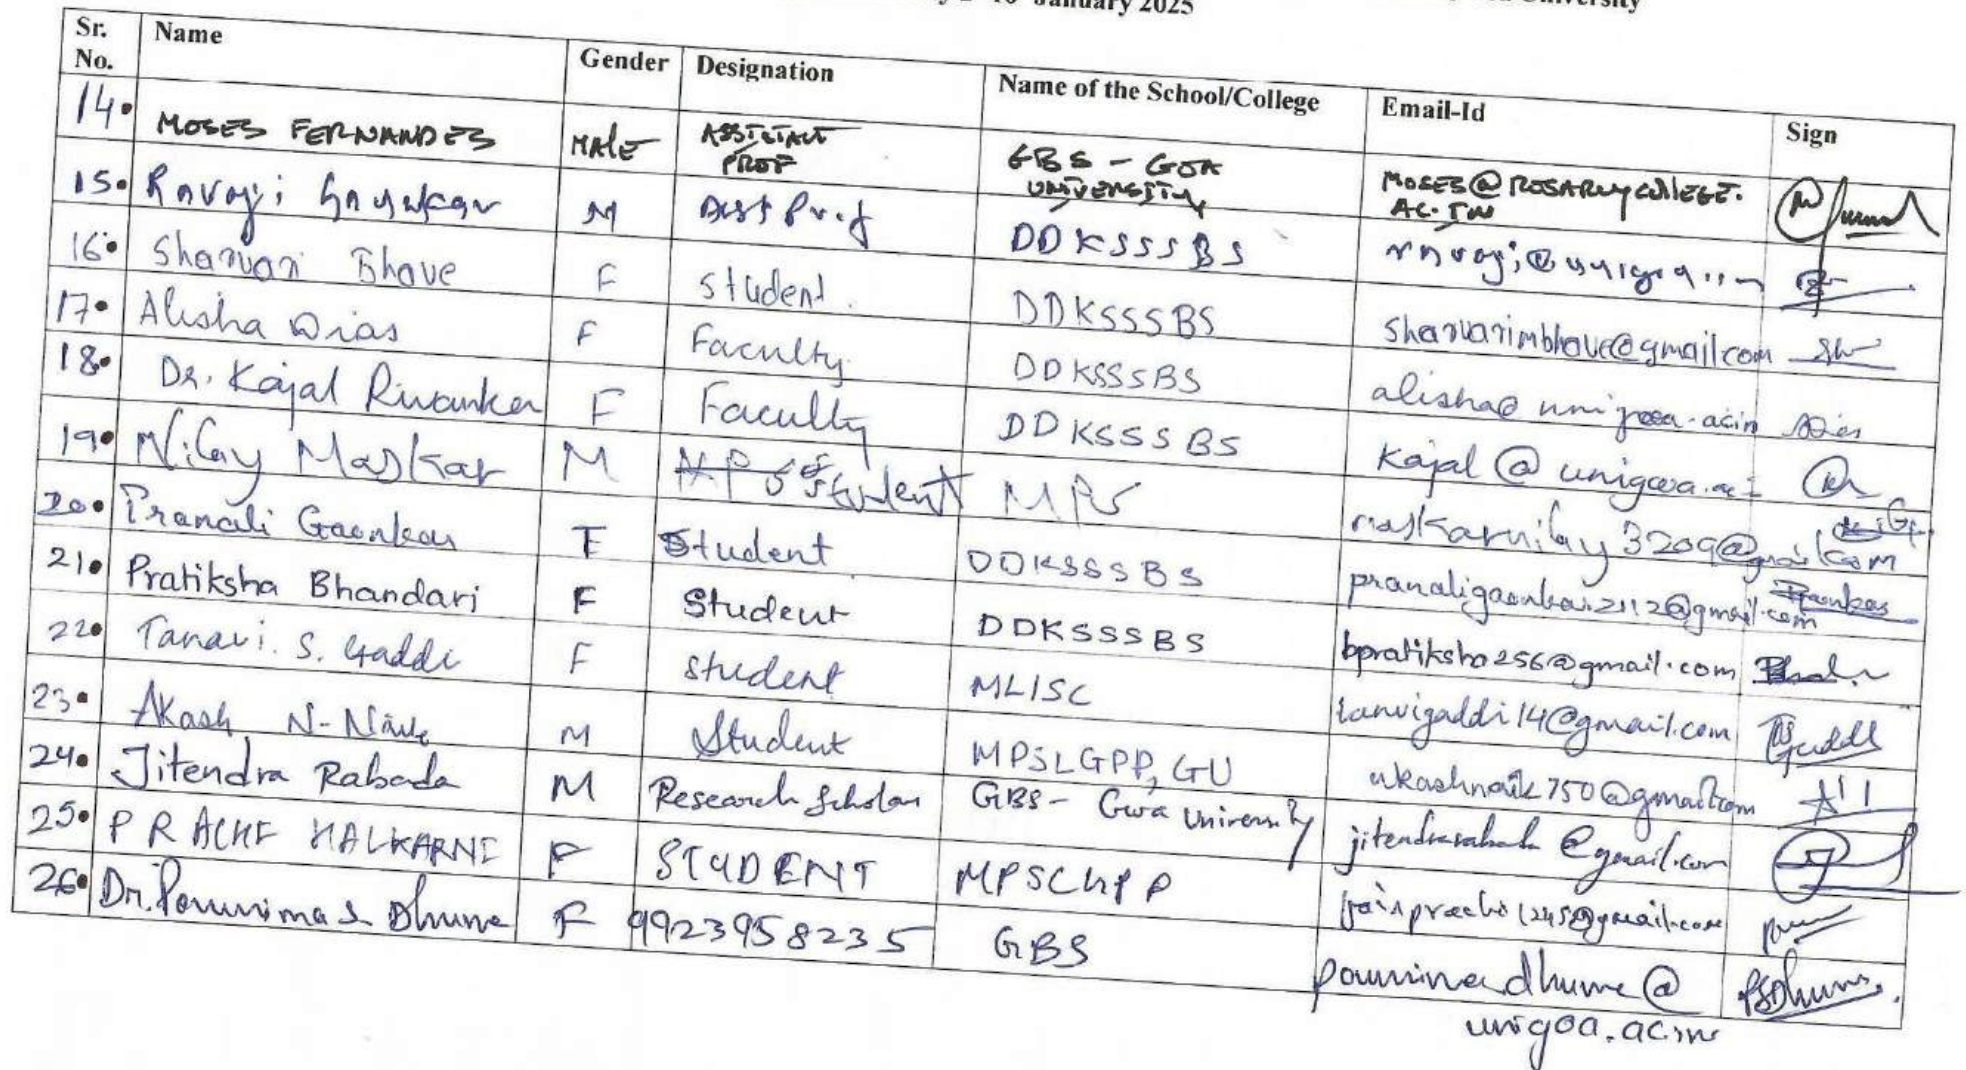 January 2025 University
Sr. No. Name Gender Designation Name of the School/College Email-Id Sign
14. MOSES FERNANDES MALE ASSISTANT PROF GBS - GOA UNIVERSITY MOSES@ROSARYCOLLEGE.AC.IN
15. M Asst Prof DDKSSSBS
16. Sharvari Bhave F Student DDKSSSBS sharvarimbhave@gmail.com
17. Alisha Dias F Faculty DDKSSSBS alisha@unigoa.ac.in
18. Dr. Kajal Rivankar F Faculty DDKSSSBS kajal@unigoa.ac.i
19. Nilay Maskar M Student MPS maskarnilay3209@gmail.com
20. Pranali Gaonkar F Student DDKSSSBS pranaligaonkar2112@gmail.com
21. Pratiksha Bhandari F Student DDKSSSBS bpratiksha256@gmail.com
22. Tanavi. S. Gaddi F Student MLISC tanvigaddi14@gmail.com
23. Akash N-Naik M Student MPSLGPP, GU akashnaik750@gmail.com
24. Jitendra Rabada M Research Scholar GBS - Goa University
25. PRACHI HALKARNI F STUDENT
26. Dr. Pournima S Dhume F 9923958235 GBS pournima.dhume@
unigoa.ac.in